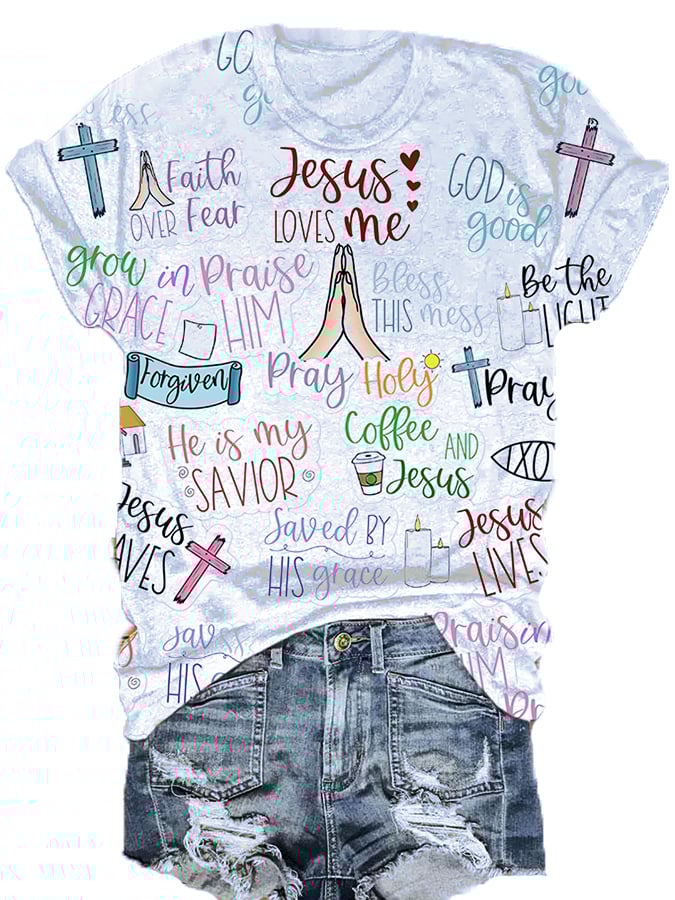 GO
go
ess
go
Faith
OVER Fear
Jesus
LOVES me
GOD is
good
grow in
GRACE
Praise
HIM
Bless
THIS mess
Be the
LIGHT
Forgiven
Pray
Holy
Pray
He is my
SAVIOR
Coffee AND
Jesus
IXO
Jesus
AVES
Saved BY
HIS grace
Jesus
LIVES
Saves
HIS
Praisin
HIM
Pr